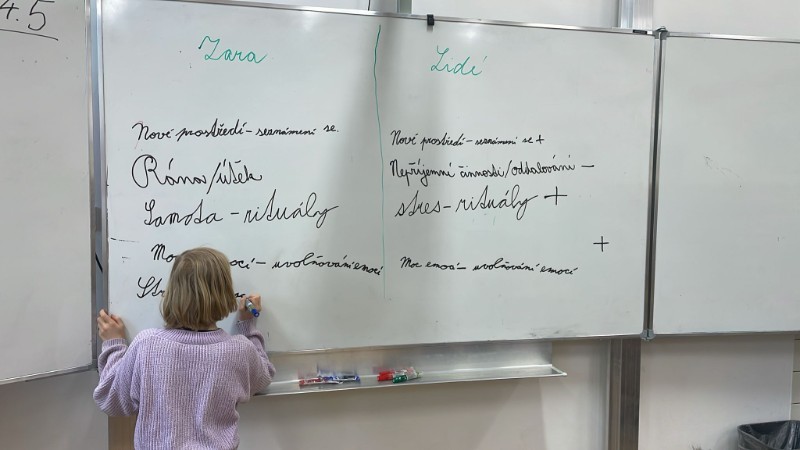 4.5
Zara
Lidé
Nové prostředí - seznámení se.
Rána/útěk
Samota - rituály
Mo ocí - uvolňování emocí
St
Nové prostředí - seznámení se +
Nepříjemní činnosti/oddalování -
stres - rituály +
+
Moc emocí - uvolňování emocí